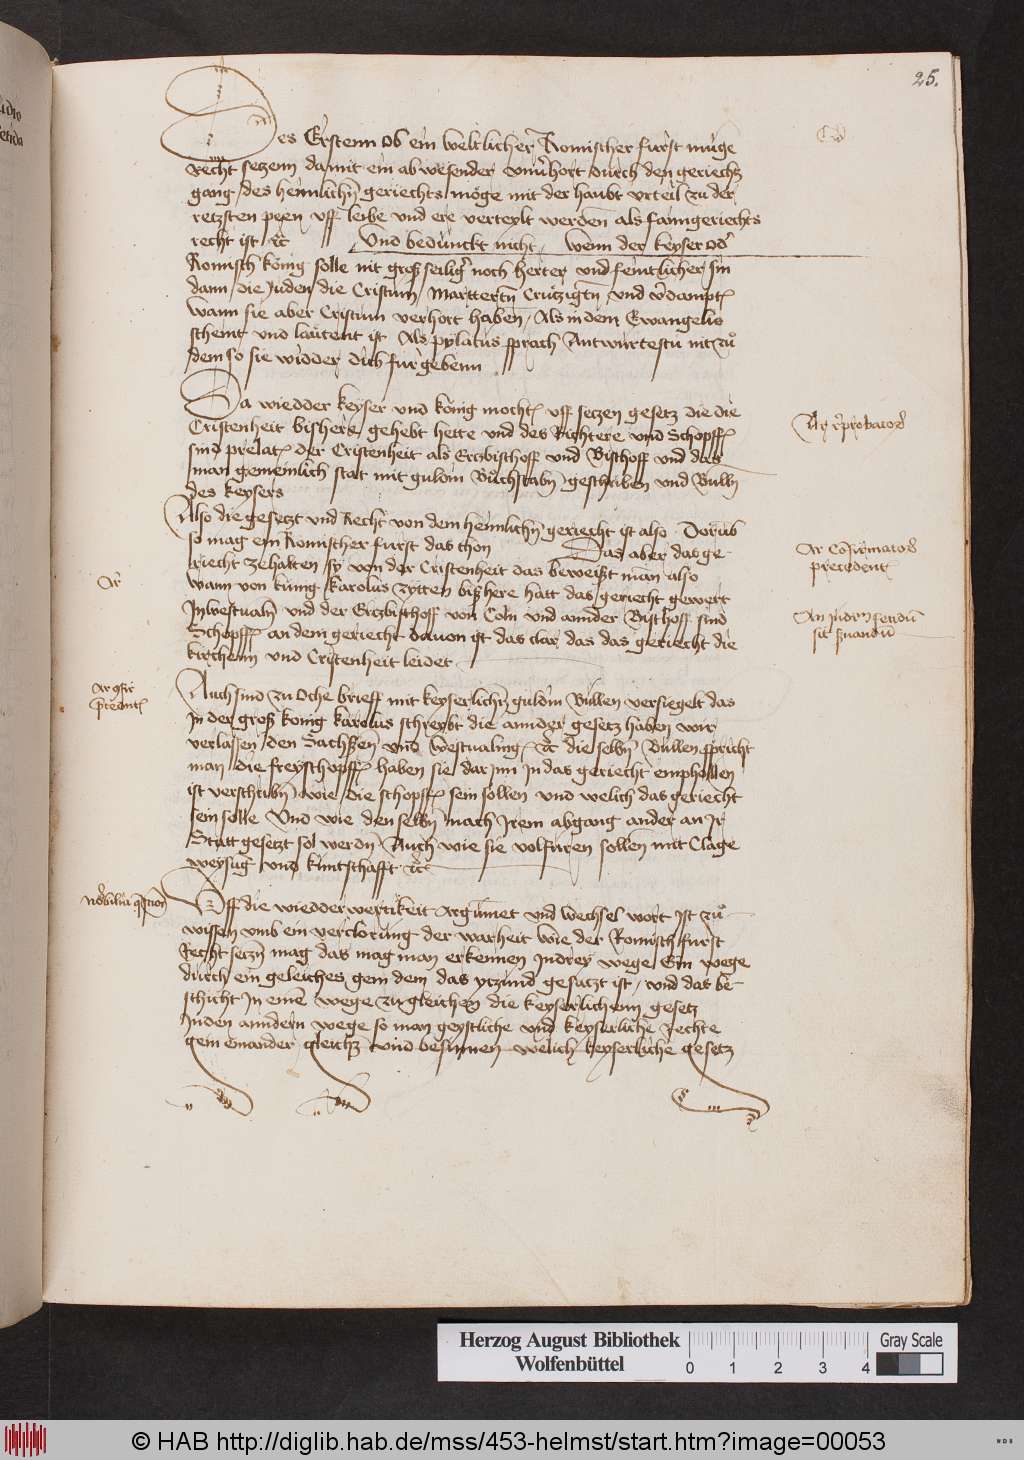 25.
Des Erstenn Ob ein weltlicher Romischer furst muge
recht setzenn damit ein abwesender unverhort durch den geriechtz
gang des heimlichen geriechts möge mit der haubt urteil zu der
letzsten peen uff leibe und ere verteylt werden als faimgeriechts
recht ist etc Und bedunckt nicht wenn der keyser oder
Romisch könig solle nit groß seiliger noch herter und feintlicher sin
dann die Juden die Cristum Martterten Crützigten und
Wann sie aber Cristum verhort haben Als in dem Ewangelio
scheint und lautent ist Als pylatus sprach Antwurtestu nit zu
dem so sie widder dich furgebenn
Da wiedder keyser und könig mochten uff setzen gesetz die die
Cristenheit bishere gehebt hette und des Richtere und Schopffen
sind prelaten der Cristenheit als Ertzbischoff und Bischoff und das
man gemeinlich stat mit guldin Buchstaben geschriben und Bullen
des keysers
Also die gesetzt und Recht von dem heimlichen geriecht ist also Dorub
so mag ein Romischer furst das thon Das aber das ge-
riecht zehalten sy von der Cristenheit das beweißt man also
Wann von kunig karolus zytten bißhere hatt das geriecht gewert
In westualn und der Ertzbischoff von Coln und annder Bischoff sind
Schopffen an dem geriecht davon ist das clar das das geriecht die
kirchenn und Cristenheit leidet
Auch sind zu Oche brieff mit keyserlichen guldin Bullen versiegelt das
In der groß konig karolus schreybt die annder gesetz haben wir
verlassen den Sachssen und westualingen etc die selben Bullen spricht
man die freyschopffen haben sie dar jnn In das geriecht empholhen
ist verschriben wie die schopffen sein sollen und welich das geriecht
sein solle Und wie den selben nach Irem abgang ander an Ir
Statt gesetzt sol werden Auch wie sie volfuren sollen mit Clage
weysung und kuntschafft etc
Uff die wiedderwertikeit Argument und wechsel wort Ist zu
wissen umb ein verclorung der warheit wie der Romisch furst
Recht setzen mag das mag man erkennen In drey wege Ein wege
durch ein geleiches gein dem das ytzund gesatzt ist und das be-
schicht In einem wege zu gleichen die keyserlichenn gesetz
In den anndern wege so man geystliche und keyserliche Rechte
gein einander gleichz und besinnen welich keyserliche gesetz
Herzog August Bibliothek
Wolfenbüttel
0 1 2 3 4
Gray Scale
© HAB http://diglib.hab.de/mss/453-helmst/start.htm?image=00053